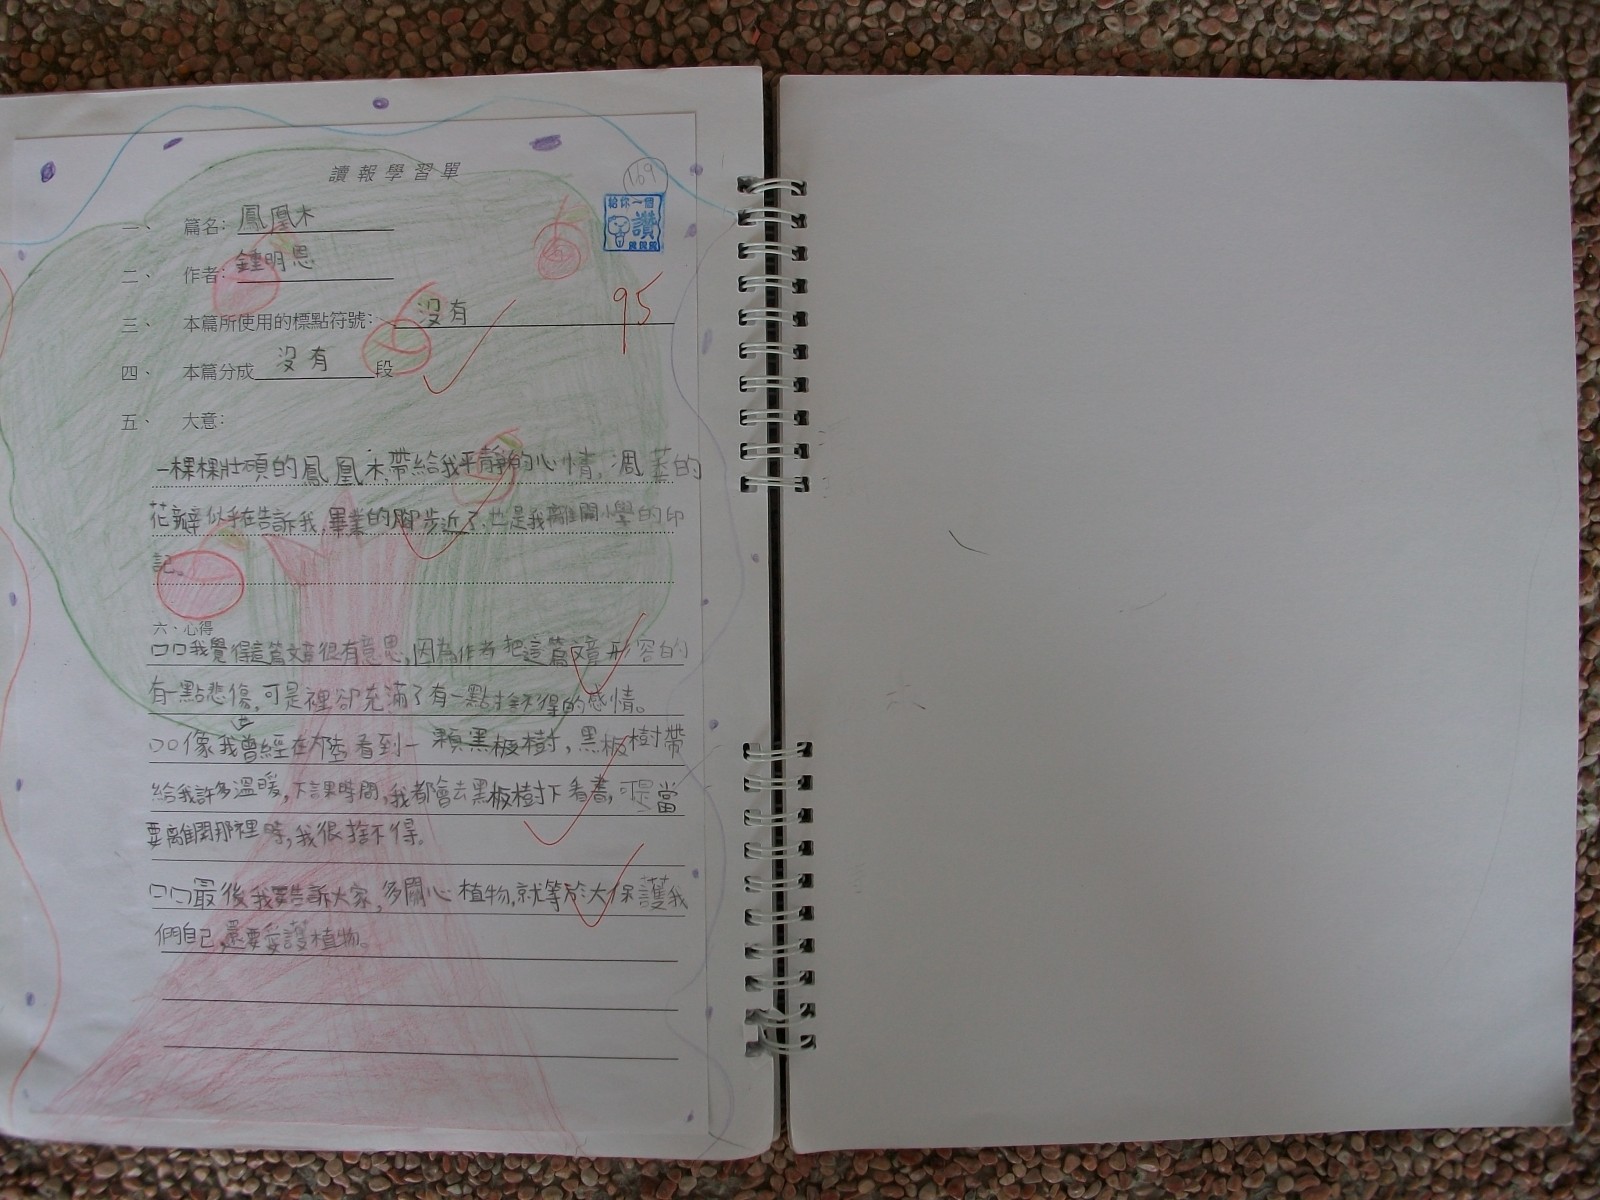 讀報學習單
169
給你一個
讚
一、 篇名：鳳凰木
二、 作者：鍾明恩
95
三、 本篇所使用的標點符號：沒有
四、 本篇分成沒有段
五、 大意：
一棵棵壯碩的鳳凰木,帶給我平靜的心情,凋 的
花瓣似乎在告訴我,畢業的腳步近了,也是我離開小學的印
記。
六、心得
□□我覺得這篇文章很有意思,因為作者把這篇文章形容的
有一點悲傷,可是裡卻充滿了有一點捨不得的感情。
□□像我曾經在 看到一顆黑板樹,黑板樹帶
給我許多溫暖,下課時間,我都會去黑板樹下看書,可是當
要離開那裡時,我很捨不得。
□□最後我要告訴大家,多關心植物,就等於大保護我
們自己,還要愛護植物。